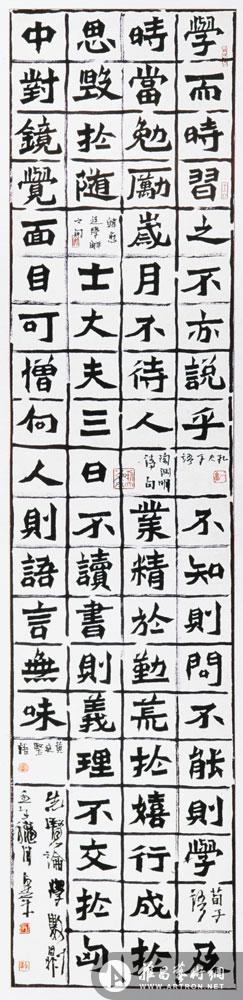 學而時習之不亦說乎孔夫子語不知則問不能則學荀子語及
時當勉勵歲月不待人陶淵明詩句業精於勤荒扵嬉行成扵
思毀扵随韓愈進學解之句士大夫三日不讀書則義理不交扵匈
中對鏡覺面目可憎向人則語言無味黃庭堅語
先賢論學數則
雅昌藝術網
WWW.ARTRON.NET